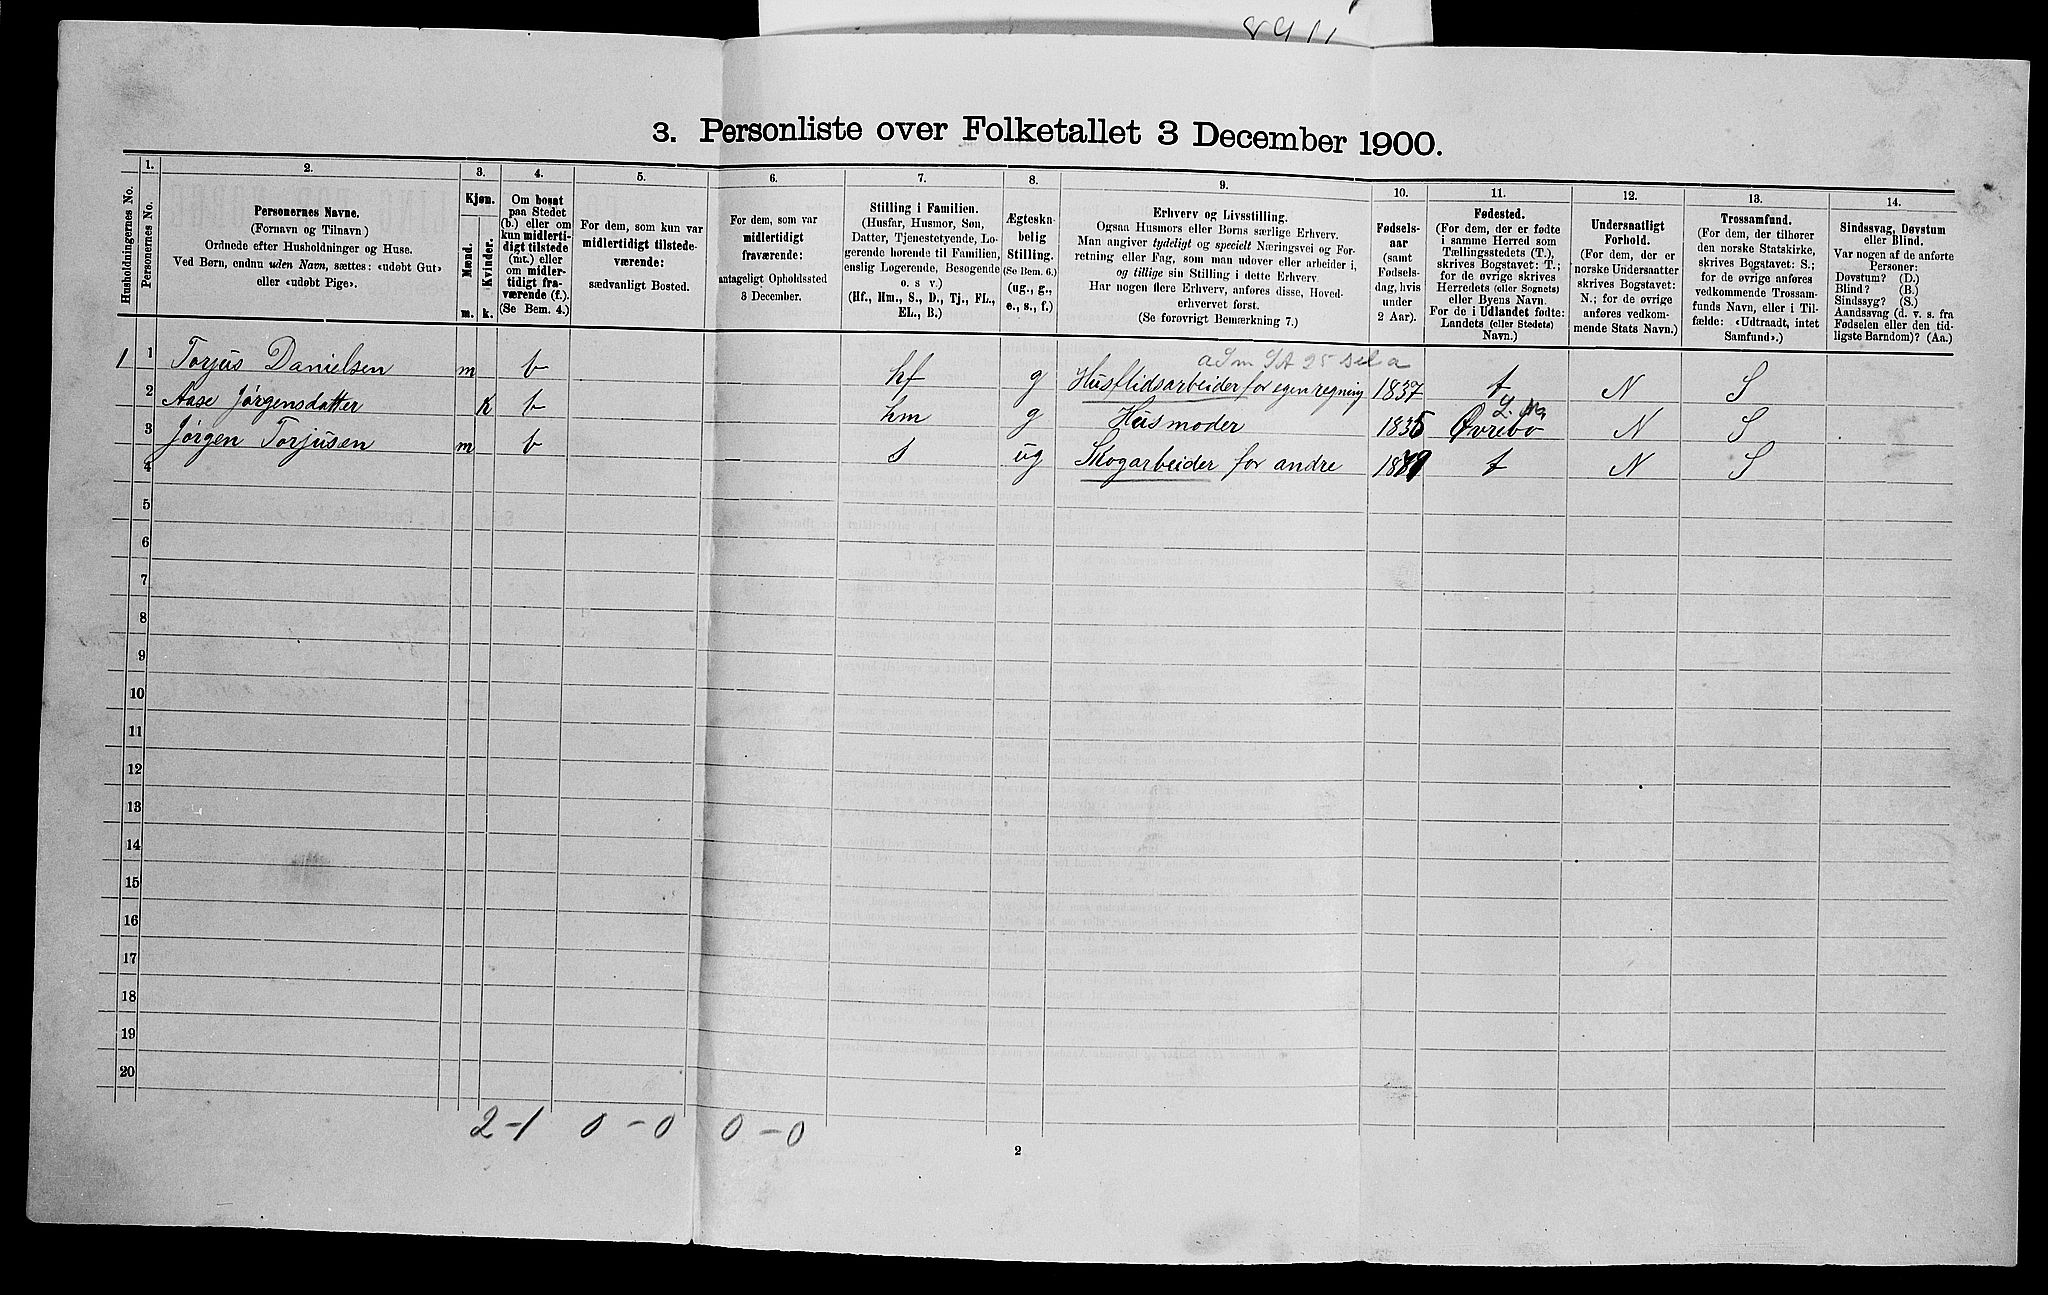 3. Personliste over Folketallet 3 December 1900.
1. 2. 3. 4. 5. 6. 7. 8. 9. 10. 11. 12. 13. 14.
Husholdningernes No.
Personernes No.
Personernes Navne.
(Fornavn og Tilnavn)
Ordnede efter Husholdninger og Huse.
Ved Børn, endnu uden Navn, sættes: «udøbt Gut»
eller «udøbt Pige».
Kjøn.
Mænd.
Kvinder.
m. k.
Om bosat
paa Stedet
(b.) eller om
kun midlerti-
digt tilstede
(mt.) eller
om midler-
tidigt fra-
værende (f.).
(Se Bem. 4.)
For dem, som kun var
midlertidigt tilstede-
værende:
sædvanligt Bosted.
For dem, som var
midlertidigt
fraværende:
antageligt Opholdssted
3 December.
Stilling i Familien.
(Husfar, Husmor, Søn,
Datter, Tjenestetyende, Lo-
gerende hørende til Familien,
enslig Logerende, Besøgende
o. s v.)
(Hf., Hm., S., D., Tj., FL.,
EL., B.)
Ægteska-
belig
Stilling.
(Se Bem. 6.)
(ug., g.,
e., s., f.)
Erhverv og Livsstilling.
Ogsaa Husmors eller Børns særlige Erhverv.
Man angiver tydeligt og specielt Næringsvei og For-
retning eller Fag, som man udover eller arbeider i,
og tillige sin Stilling i dette Erhverv.
Har nogen flere Erhverv, anføres disse, Hoved-
erhvervet først.
(Se forøvrigt Bemærkning 7.)
Fødsels-
aar
(samt
Fødsels-
dag, hvis
under
2 Aar).
Fødested.
(For dem, der er fødte
i samme Herred som
Tællingsstedets (T.),
skrives Bogstavet: T.;
for de øvrige skrives
Herredets (eller Sognets)
eller Byens Navn.
For de i Udlandet fødte:
Landets (eller Stedets)
Navn.)
Undersaatligt
Forhold.
(For dem, der er
norske Undersaatter
skrives Bogstavet:
N.; for de øvrige
anføres vedkom-
mende Stats Navn.)
Trossamfund.
(For dem, der tilhører
den norske Statskirke,
skrives Bogstavet: S.;
for de øvrige anføres
vedkommende Trossam-
funds Navn, eller i Til-
fælde: «Udtraadt, intet
Samfund».)
Sindssvag, Døvstum
eller Blind.
Var nogen af de anførte
Personer:
Døvstum? (D.)
Blind? (B.)
Sindssyg? (S.)
Aandssvag (d. v. s. fra
Fødselen eller den tid-
ligste Barndom)? (Aa.)
1 1 Torjus Danielsen m b hf g Husflidsarbeider for egen regning 1837 t N S
2 Aase Jørgensdatter k b hm g Husmoder 1835 Øvrebo N S
3 Jørgen Torjusen m b s ug Skogarbeider for andre 1879 t N S
4
5
6
7
8
9
10
11
12
13
14
15
16
17
18
19
20
2-1 0-0 0-0
2